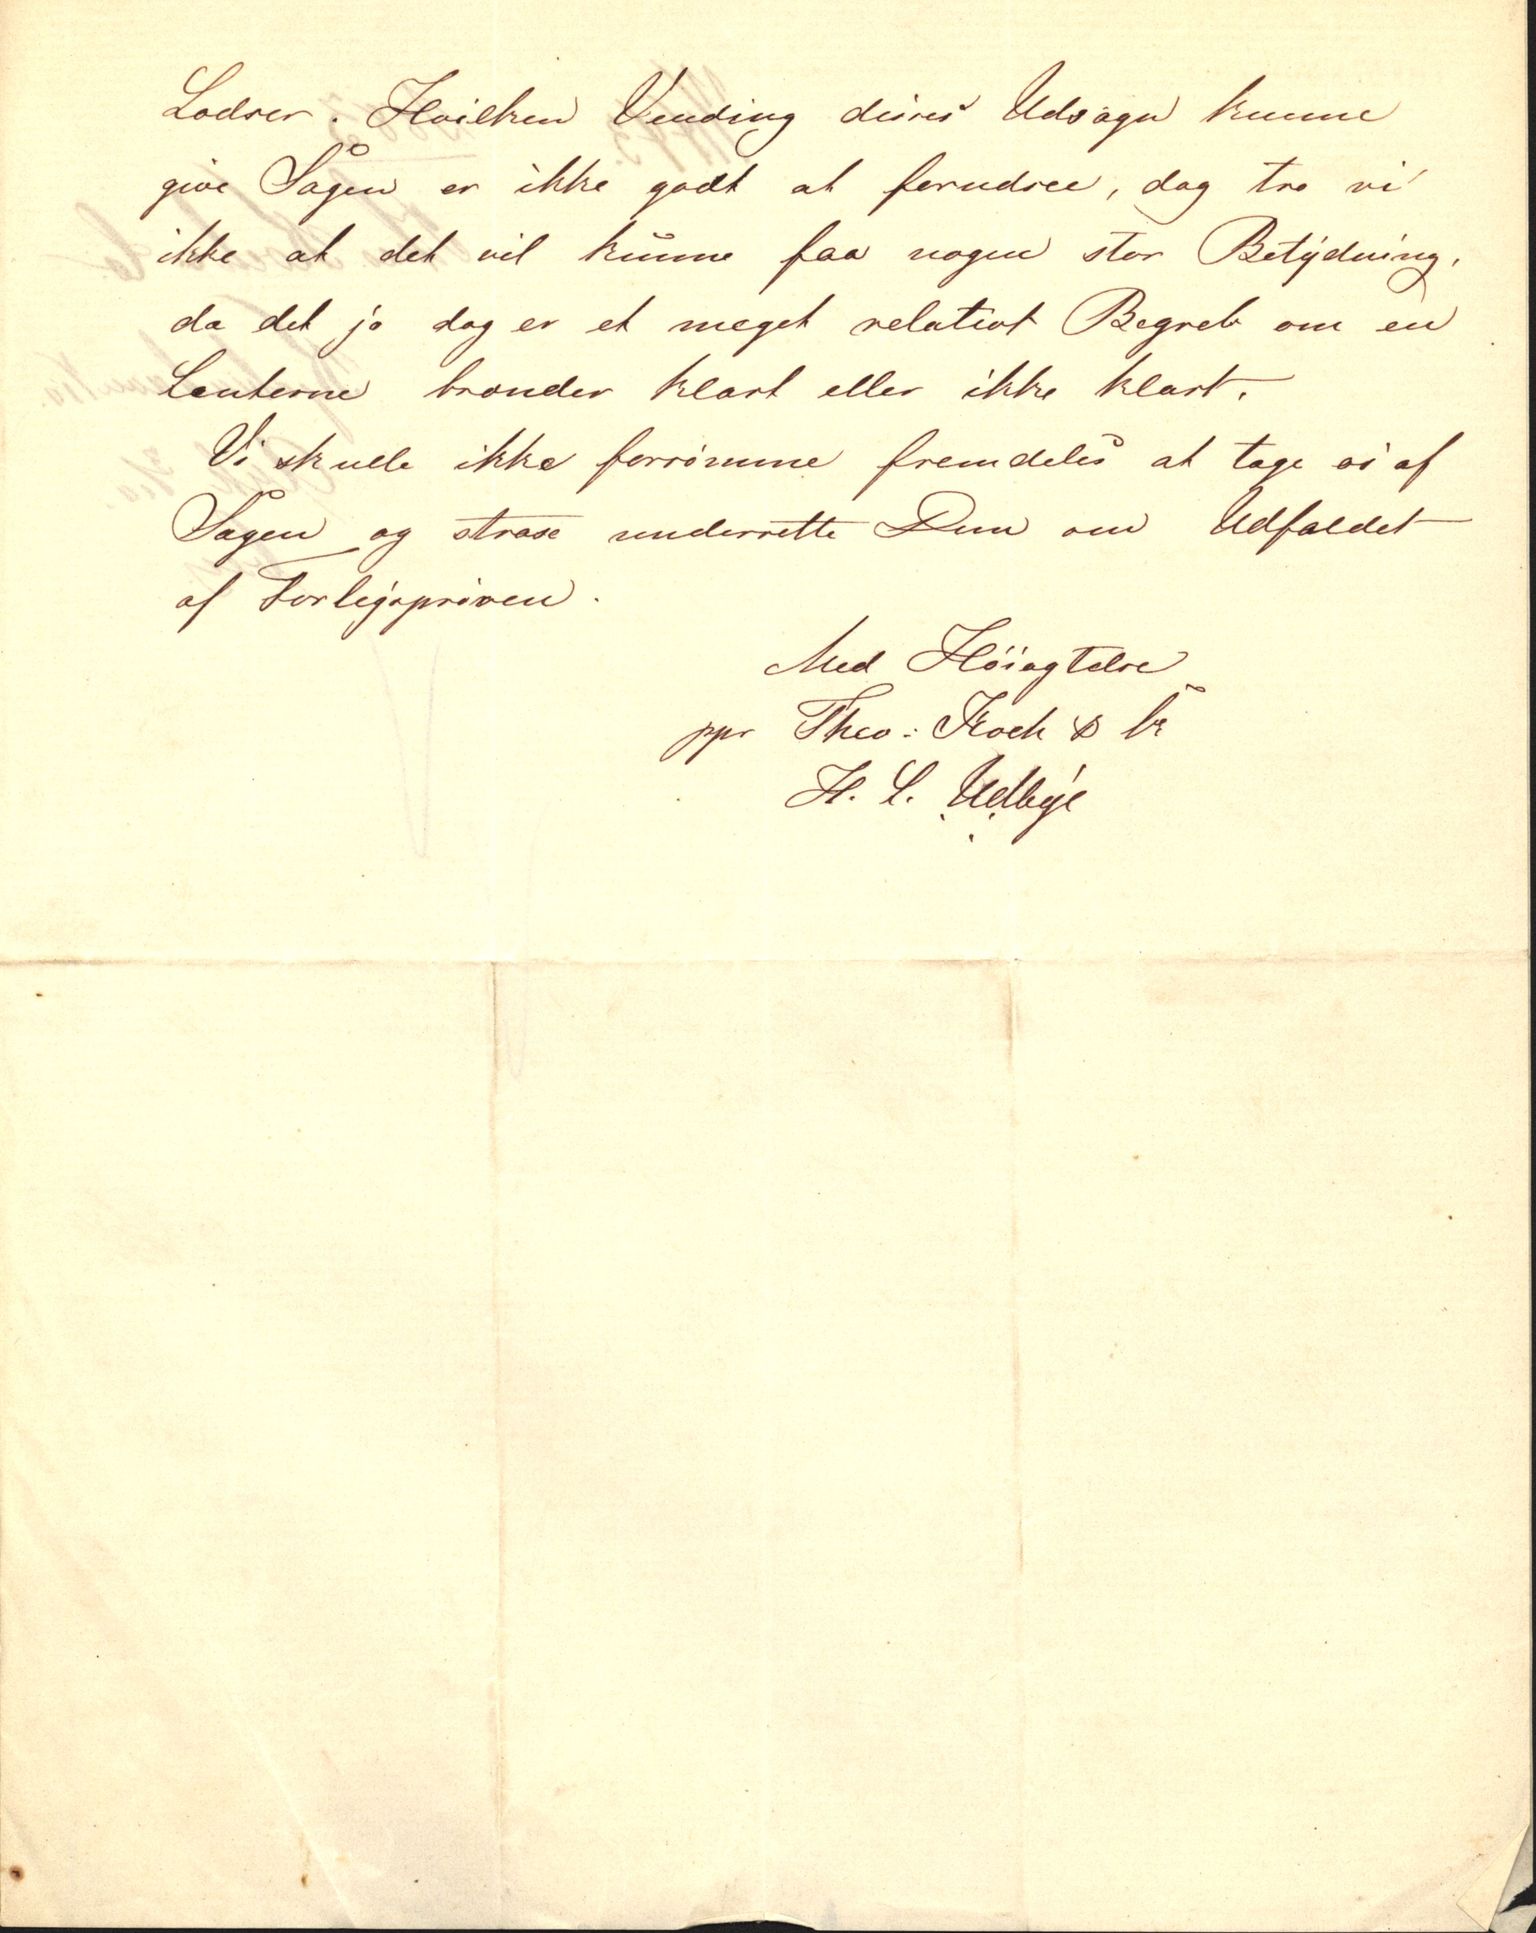 Lodser. Hvilken Vending disses Udsagn kunne
give Sagen er ikke godt at forudsee, dog tro vi
ikke at det vil kunne faa nogen stor Betydning,
da det jo dog er et meget relativt Begreb om en
Lanterne brænder klart eller ikke klart.
Vi skulle ikke forsømme fremdeles at tage os af
Sagen og strax underrette Dem om Udfaldet
af Forligsprøven.
Med Høiagtelse
ppr Theo: Koch & Co
H. L. Udbye